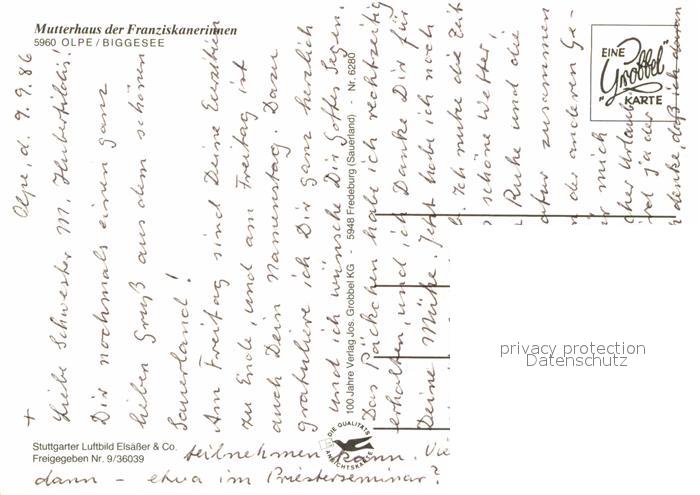 Mutterhaus der Franziskanerinnen
5960 OLPE / BIGGESEE
EINE
"Grobbel"
KARTE
+ Olpe, d. 9.9.86
Liebe Schwester M. Hubertildis!
Dir nochmals einen ganz
lieben Gruß aus dem schönen
Sauerland!
Am Freitag sind Deine Exerzitien
zu Ende, und am Freitag ist
auch Dein Namenstag. Dazu
gratuliere ich Dir ganz herzlich
und ich wünsche Dir Gottes Segen.
Das Päckchen habe ich rechtzeitig
erhalten, und ich Danke Dir für
Deine Mühe. Jetzt habe ich noch
Ich nutze die Zeit
schöne Wetter
Ruhe und die
atur zusammen
der anderen Ge-
r mich
cher Urlaub
rd ja der
denke, daß ich daran
teilnehmen kann. Vie
dann - etwa im Priesterseminar?
100 Jahre Verlag Jos. Grobbel KG - 5948 Fredeburg (Sauerland) - Nr. 6280
DIE QUALITÄTS
ANSICHTSKARTE
Stuttgarter Luftbild Elsäßer & Co.
Freigegeben Nr. 9/36039
privacy protection
Datenschutz